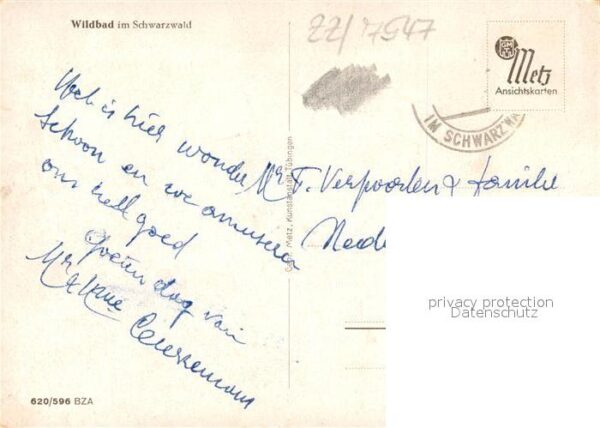 Wildbad im Schwarzwald
22/7547
Het is hier wonder
schoon en we amuseren
ons heel goed
Goeden dag van
Mr
Metz
Ansichtskarten
IM SCHWARZWA
Mr F. Verpoorten & familie
Neder
Gebr. Metz, Kunstanstalt, Tübingen
privacy protection
Datenschutz
620/596 BZA